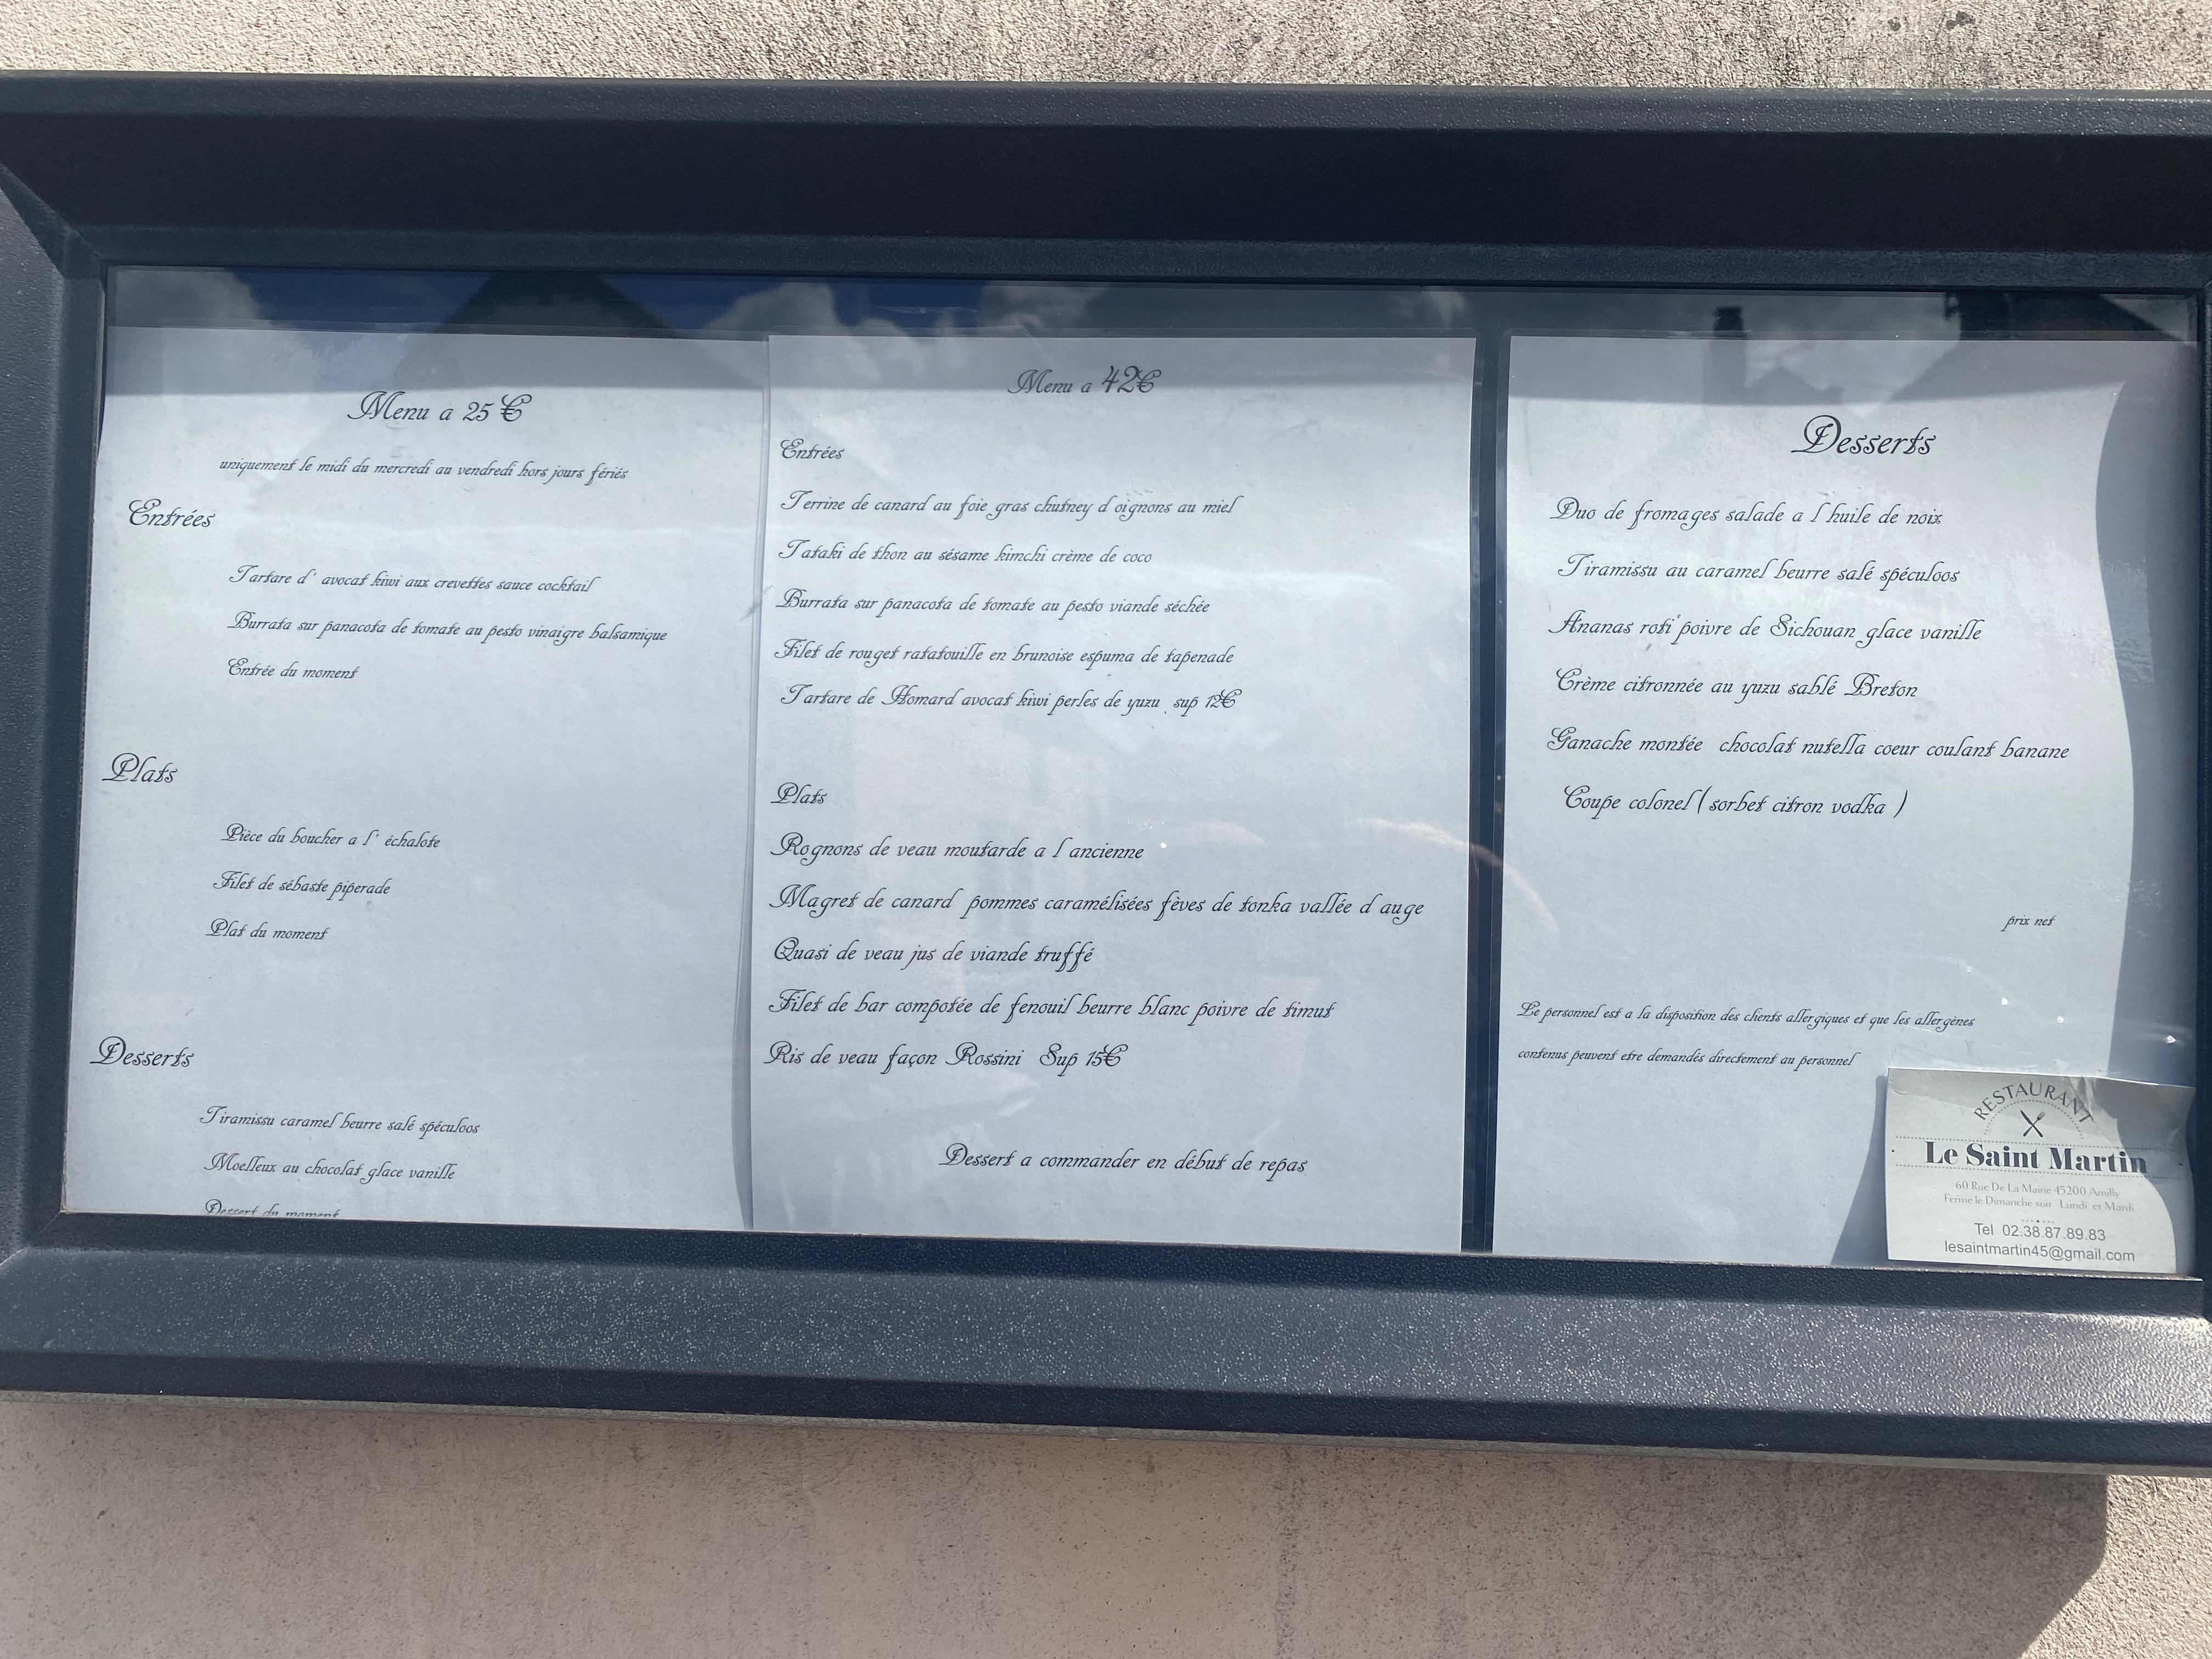 Menu a 25 €
uniquement le midi du mercredi au vendredi hors jours fériés
Entrées
Tartare d' avocat kiwi aux crevettes sauce cocktail
Burrata sur panacota de tomate au pesto vinaigre balsamique
Entrée du moment
Plats
Pièce du boucher a l' échalote
Filet de sébaste piperade
Plat du moment
Desserts
Tiramissu caramel beurre salé spéculoos
Moelleux au chocolat glace vanille
Dessert du moment
Menu a 42€
Entrées
Terrine de canard au foie gras chutney d oignons au miel
Tataki de thon au sésame kimchi crème de coco
Burrata sur panacota de tomate au pesto viande séchée
Filet de rouget ratatouille en brunoise espuma de tapenade
Tartare de Homard avocat kiwi perles de yuzu sup 12€
Plats
Rognons de veau moutarde a l ancienne
Magret de canard pommes caramélisées fèves de tonka vallée d auge
Quasi de veau jus de viande truffé
Filet de bar compotée de fenouil beurre blanc poivre de timut
Ris de veau façon Rossini Sup 15€
Dessert a commander en début de repas
Desserts
Duo de fromages salade a l huile de noix
Tiramissu au caramel beurre salé spéculoos
Ananas roti poivre de Sichouan glace vanille
Crème citronnée au yuzu sablé Breton
Ganache montée chocolat nutella coeur coulant banane
Coupe colonel ( sorbet citron vodka )
prix net
Le personnel est a la disposition des clients allergiques et que les allergènes
contenus peuvent etre demandés directement au personnel
RESTAURANT
Le Saint Martin
60 Rue De La Mairie 45200 Amilly
Ferme le Dimanche soir Lundi et Mardi
Tel 02.38.87.89.83
lesaintmartin45@gmail.com